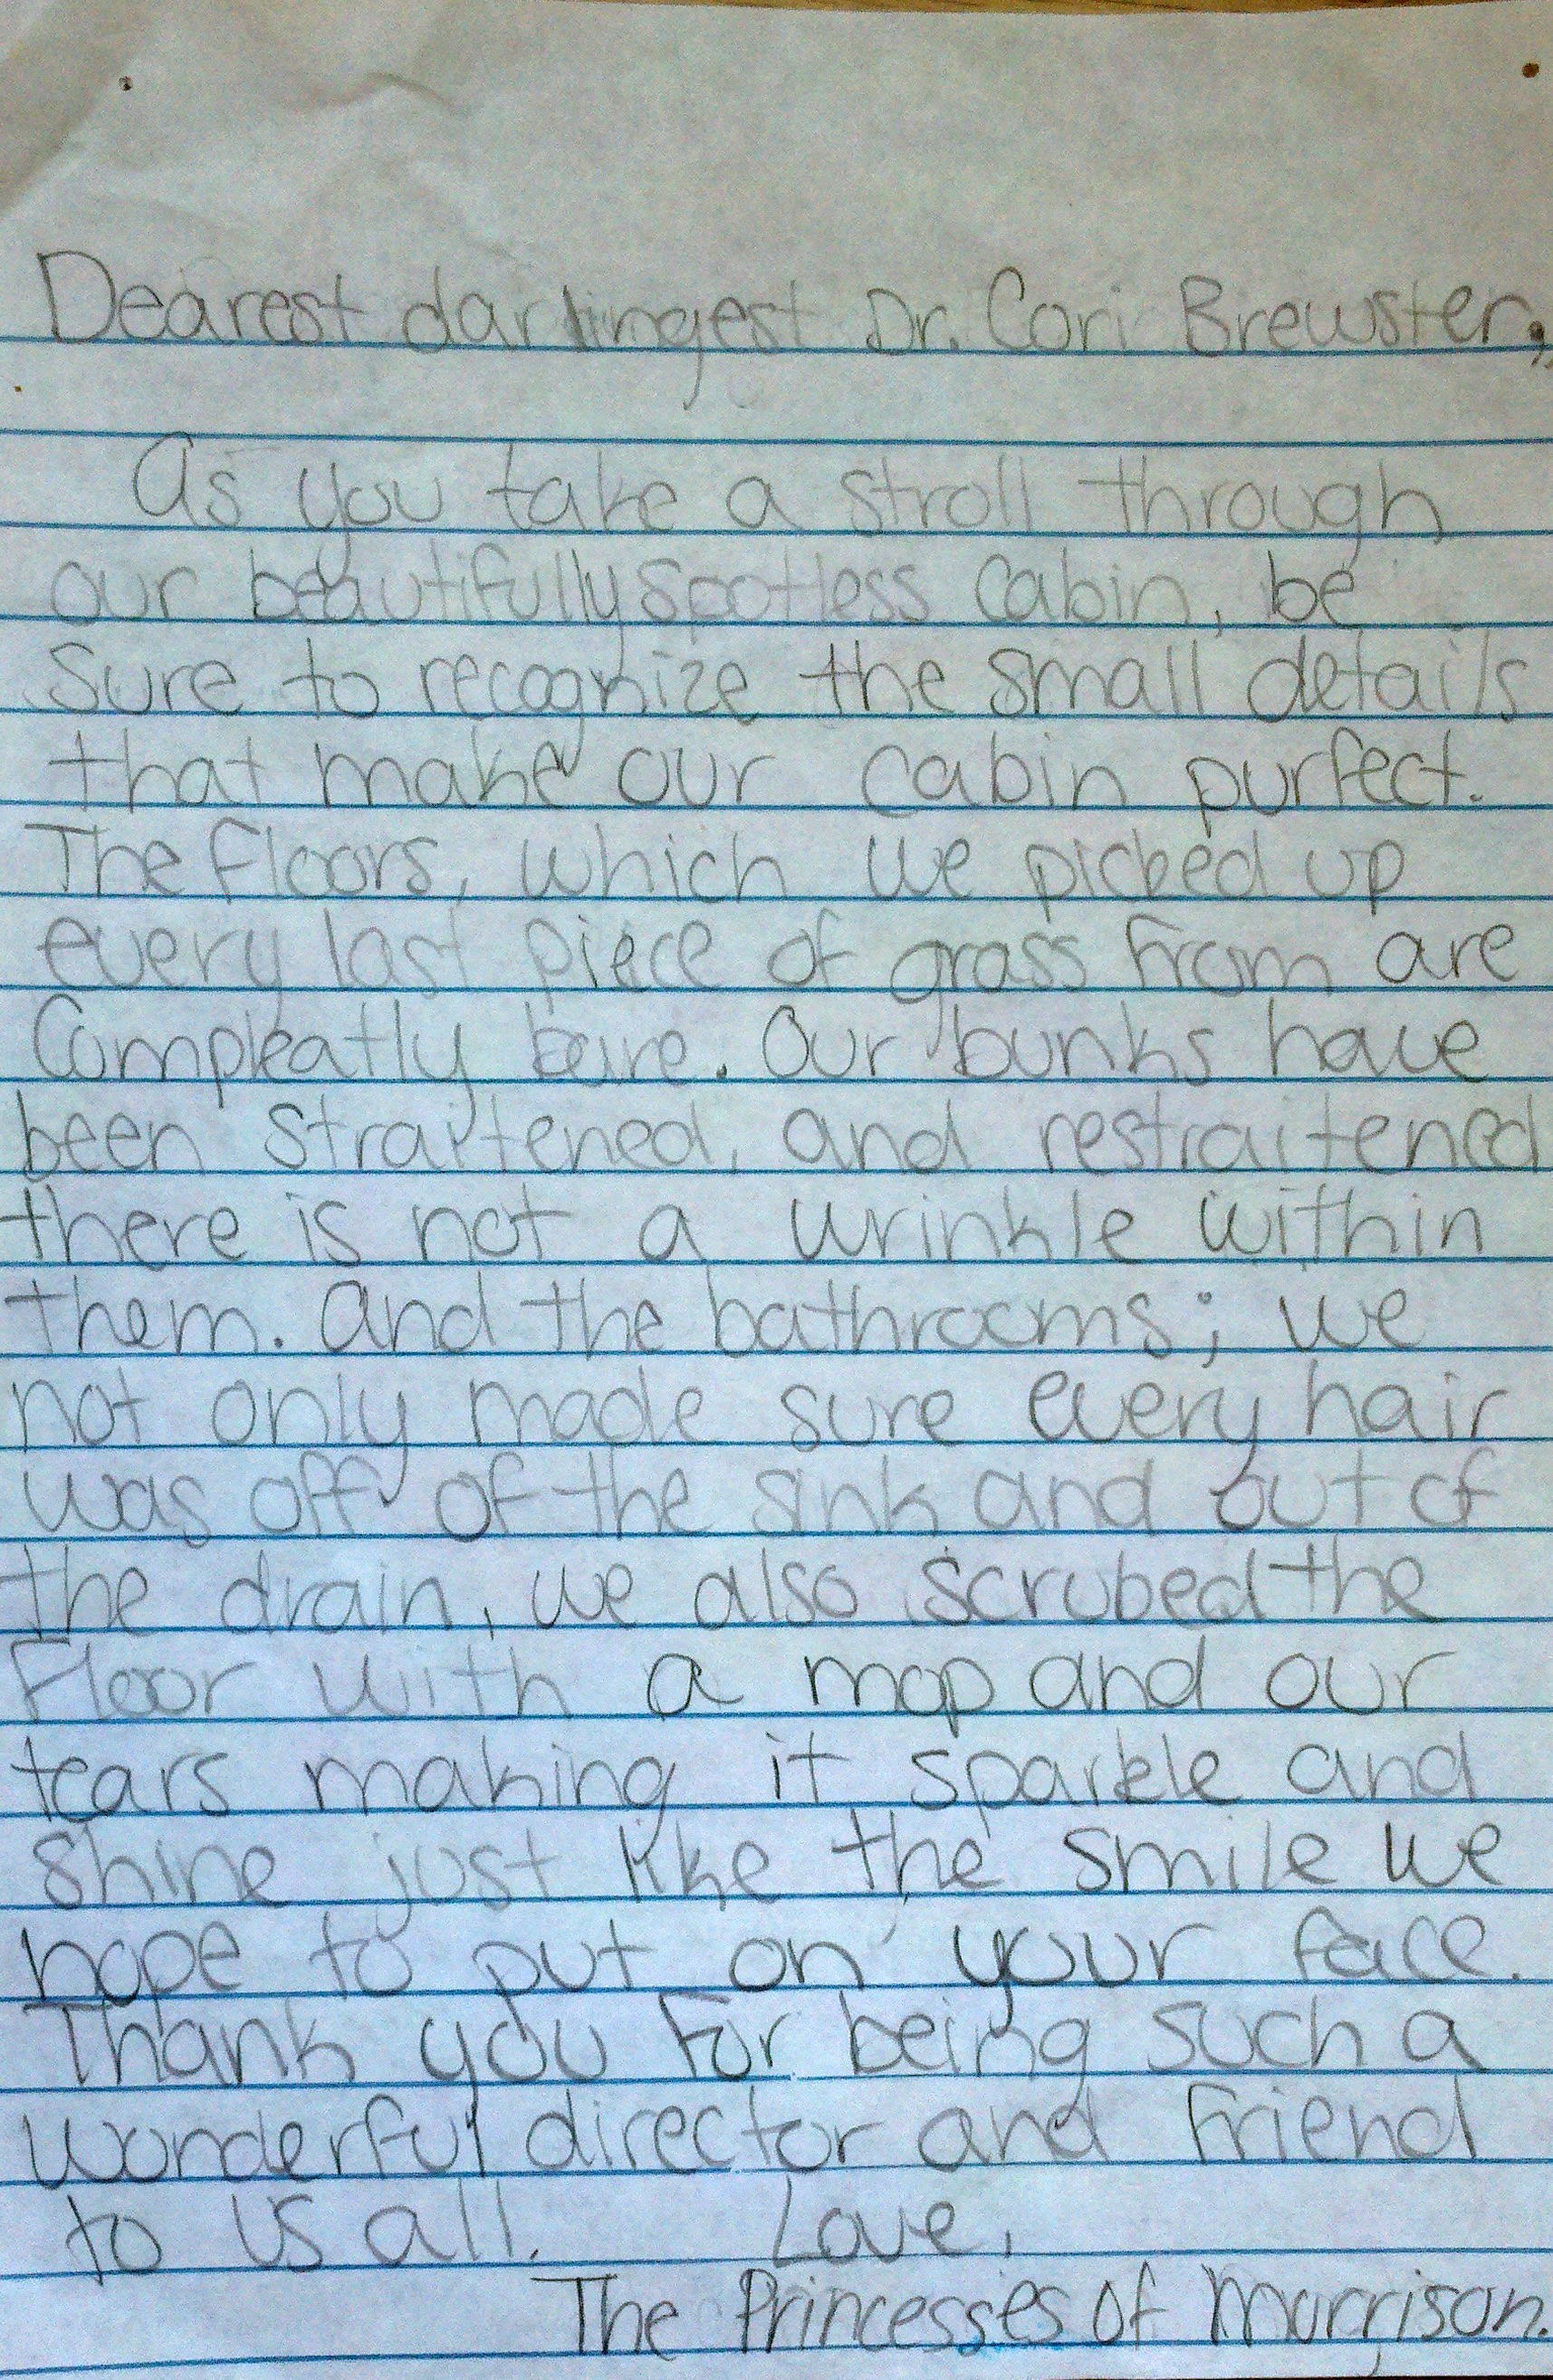 Dearest darlingest Dr. Cori Brewster,
As you take a stroll through
our beautifully spotless cabin, be
Sure to recognize the small details
that make our cabin purfect.
The floors, which we picked up
every last piece of grass from are
Compleatly bare. Our bunks have
been straitened, and restraitened
there is not a wrinkle within
them. And the bathrooms; we
not only made sure every hair
was off of the sink and out of
the drain, we also scrubed the
Floor with a mop and our
tears making it sparkle and
shine just like the smile we
hope to put on your face.
Thank you for being such a
wonderful director and friend
to us all. Love,
The Princesses of Morrison.